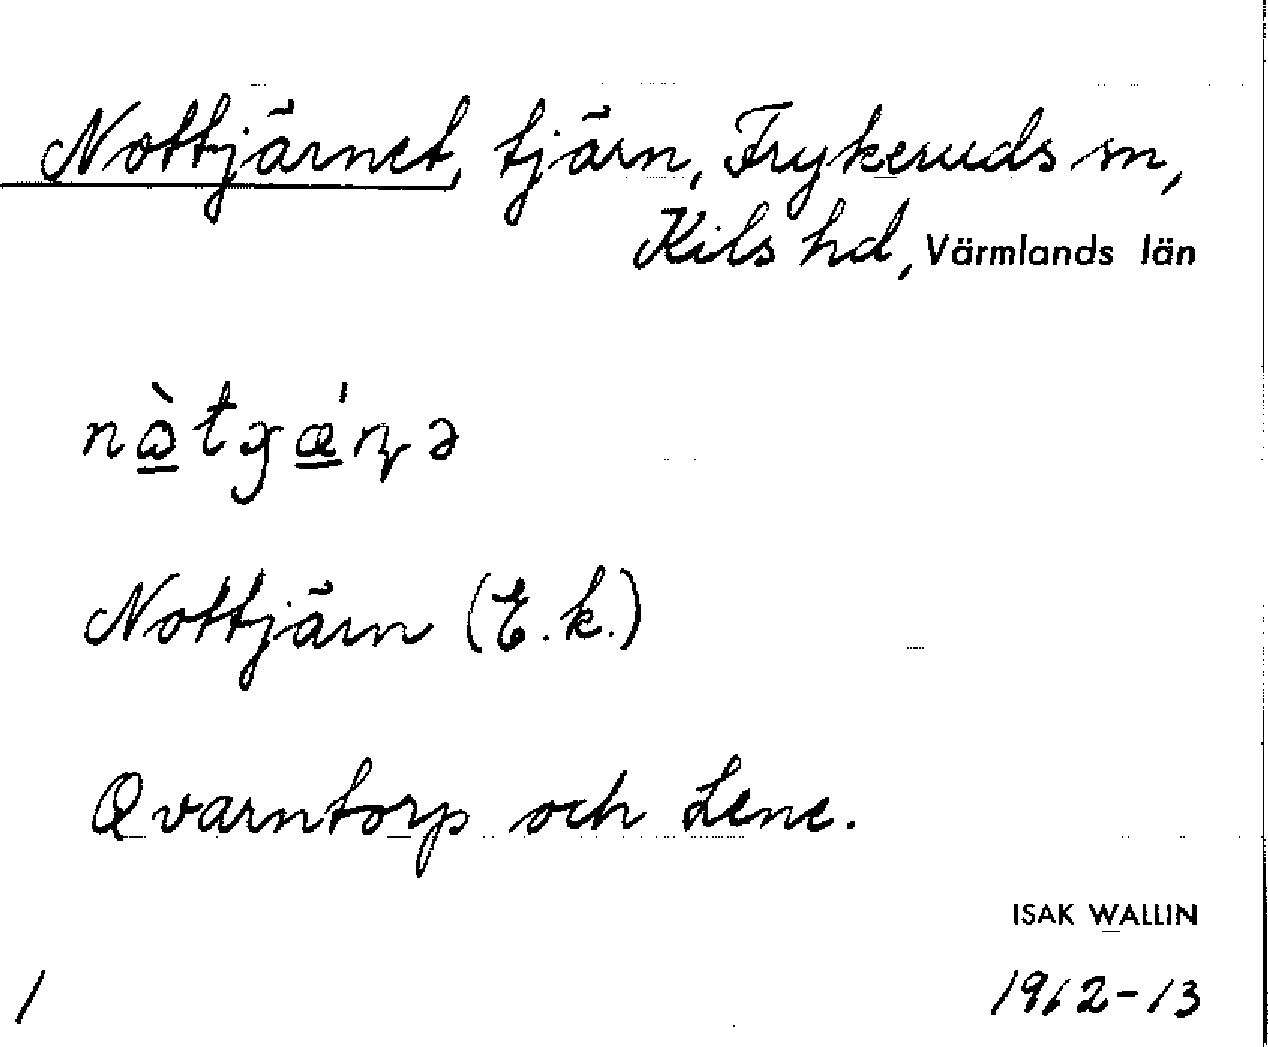 Nottjärnet, tjärn, Frykeruds sn,
Kils hd, Värmlands län
Nottjärn (E.k.)
Qvarntorp och Lene.
ISAK WALLIN
1 1912-13